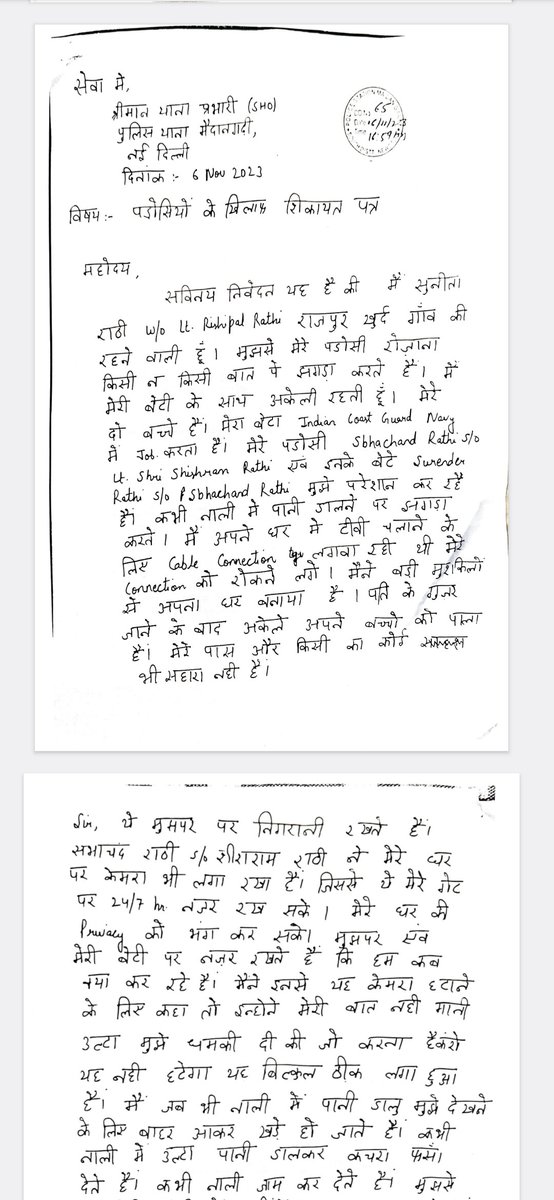 सेवा मे,
श्रीमान थाना प्रभारी (SHO)
पुलिस थाना मैदानगढी,
नई दिल्ली
दिनांक :- 6 Nov 2023
65
16/11/23
16:59
विषय:- पडोसियों के खिलाफ शिकायत पत्र
महोदय,
सविनय निवेदन यह है की मैं सुनीता
राठी w/o Lt. Rishipal Rathi राजपुर खुर्द गाँव की
रहने वाली हूँ। मुझसे मेरे पडोसी रोजाना
किसी न किसी बात पे झगड़ा करते है। में
मेरी बेटी के साथ अकेली रहती हूँ। मेरे
दो बच्चे है। मेरा बेटा Indian Coast Guard Navy
में Job करता है। मेरे पडोसी Sbhachand Rathi s/o
Lt. Shri Shishram Rathi एवं इनके बेटे Surender
Rathi s/o Sbhachand Rathi मुझे परेशान कर रहे
है। कभी नाली मे पानी डालने पर झगड़ा
करते। मैं अपने घर मे टीवी चलाने के
लिए Cable Connection लगवा रही थी मेरे
Connection को रोकने लगे। मैंने बडी मुश्किलों
से अपना घर बनाया है। पति के गुजर
जाने के बाद अकेले अपने बच्चो को पाला
है। मेरे पास और किसी का कोई
भी सहारा नही है।
Sir, ये मुझपर पर निगरानी रखते है।
सभाचंद राठी s/o शीशराम राठी ने मेरे घर
पर केमरा भी लगा रखा है। जिससे ये मेरे गेट
पर 24/7 hr. नज़र रख सके। मेरे घर की
Privacy को भंग कर सके। मुझपर एवं
मेरी बेटी पर नज़र रखते है कि हम कब
क्या कर रहे है। मैंने इनसे यह केमरा हटाने
के लिए कहा तो इन्होने मेरी बात नही मानी
उल्टा मुझे धमकी दी की जो करना है करो
यह नही हटेगा यह बिल्कुल ठीक लगा हुआ
है। मैं जब भी नाली में पानी डालु मुझे देखने
के लिए बाहर आकर खड़े हो जाते है। कभी
नाली में उल्टा पानी डालकर कचरा फसाँ
देते है। कभी नाली जाम कर देते है। मुझसे